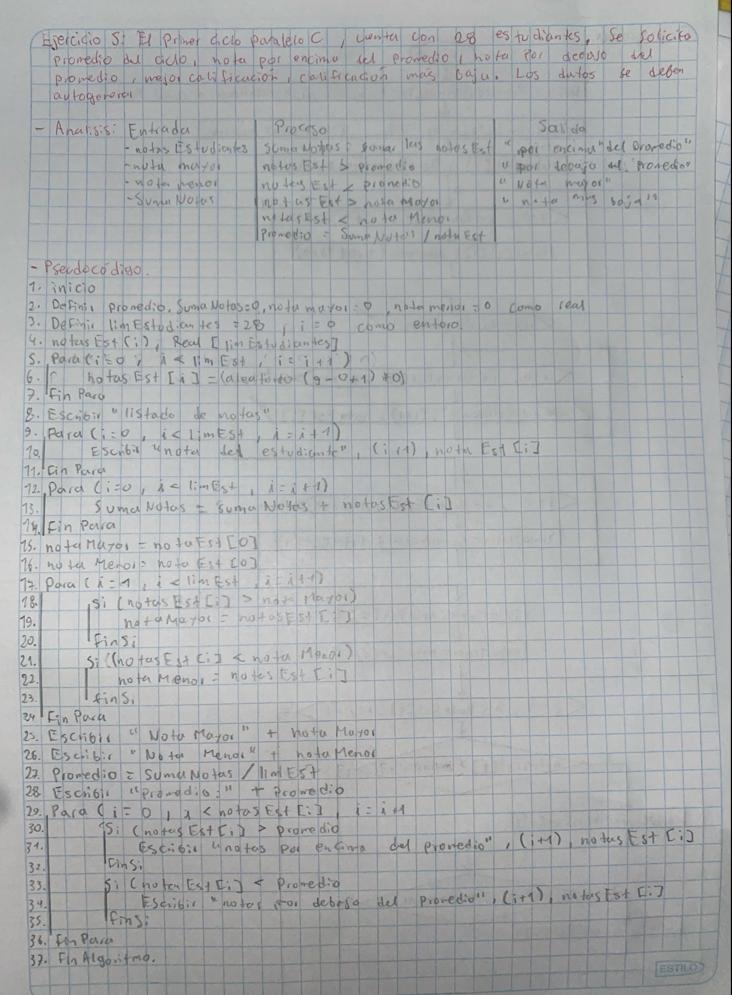 Ejercicio 5: El Primer ciclo paralelo C, cuenta con 28 estudiantes. Se Solicita
promedio del ciclo, nota por encima del promedio, nota por debajo del
promedio, mejor calificación, calificación más baja. Los datos se deben
autogenerar
- Analisis: Entrada
- notas Estudiantes
- nota mayor
- nota menor
- Suma Notas
Proceso
Suma Notas: sumar las notas Est
notas Est > promedio
notas Est < promedio
notas Est > nota Mayor
notas Est < nota Menor
Promedio = Suma Notas / nota Est
Salida
"por encima" del promedio"
"por debajo del promedio"
"Nota mayor"
"nota más baja"
- Pseudocódigo.
1. inicio
2. Definir promedio, Suma Notas=0, nota mayor=0, nota menor=0 como real
3. Definir lim Estudiantes = 28, i = 0 como entero.
4. notas Est (i), Real [lim Estudiantes]
5. Para (i=0, i < lim Est, i = i+1)
6. notas Est [i] = (aleatorio (9-0+1) +0)
7. Fin Para
8. Escribir "listado de notas"
9. Para (i=0, i < lim Est, i = i+1)
10. Escribir "nota del estudiante", (i+1), nota Est [i]
11. Fin Para
12. Para (i=0, i < lim Est, i = i+1)
13. Suma Notas = suma Notas + notas Est [i]
14. Fin Para
15. nota Mayor = nota Est [0]
16. nota Menor = nota Est [0]
17. Para (i=1, i < lim Est, i = i+1)
18. si (notas Est [i] > nota Mayor)
19. nota Mayor = notas Est [i]
20. fin Si
21. Si (notas Est [i] < nota Menor)
22. nota Menor = notas Est [i]
23. fin Si
24 Fin Para
25. Escribir "Nota Mayor" + nota Mayor
26. Escribir "Nota Menor" + nota Menor
27. Promedio = Suma Notas / lim Est
28. Escribir "promedio:" + Promedio
29. Para (i=0, i < notas Est [i], i = i+1
30. Si (notas Est [i] > promedio
31. Escribir "notas por encima del promedio", (i+1), notas Est [i]
32. Fin Si
33. Si (notas Est [i] < Promedio
34. Escribir "notas por debajo del promedio", (i+1), notas Est [i]
35. fin Si
36. Fin Para
37. Fin Algoritmo.
ESTILO